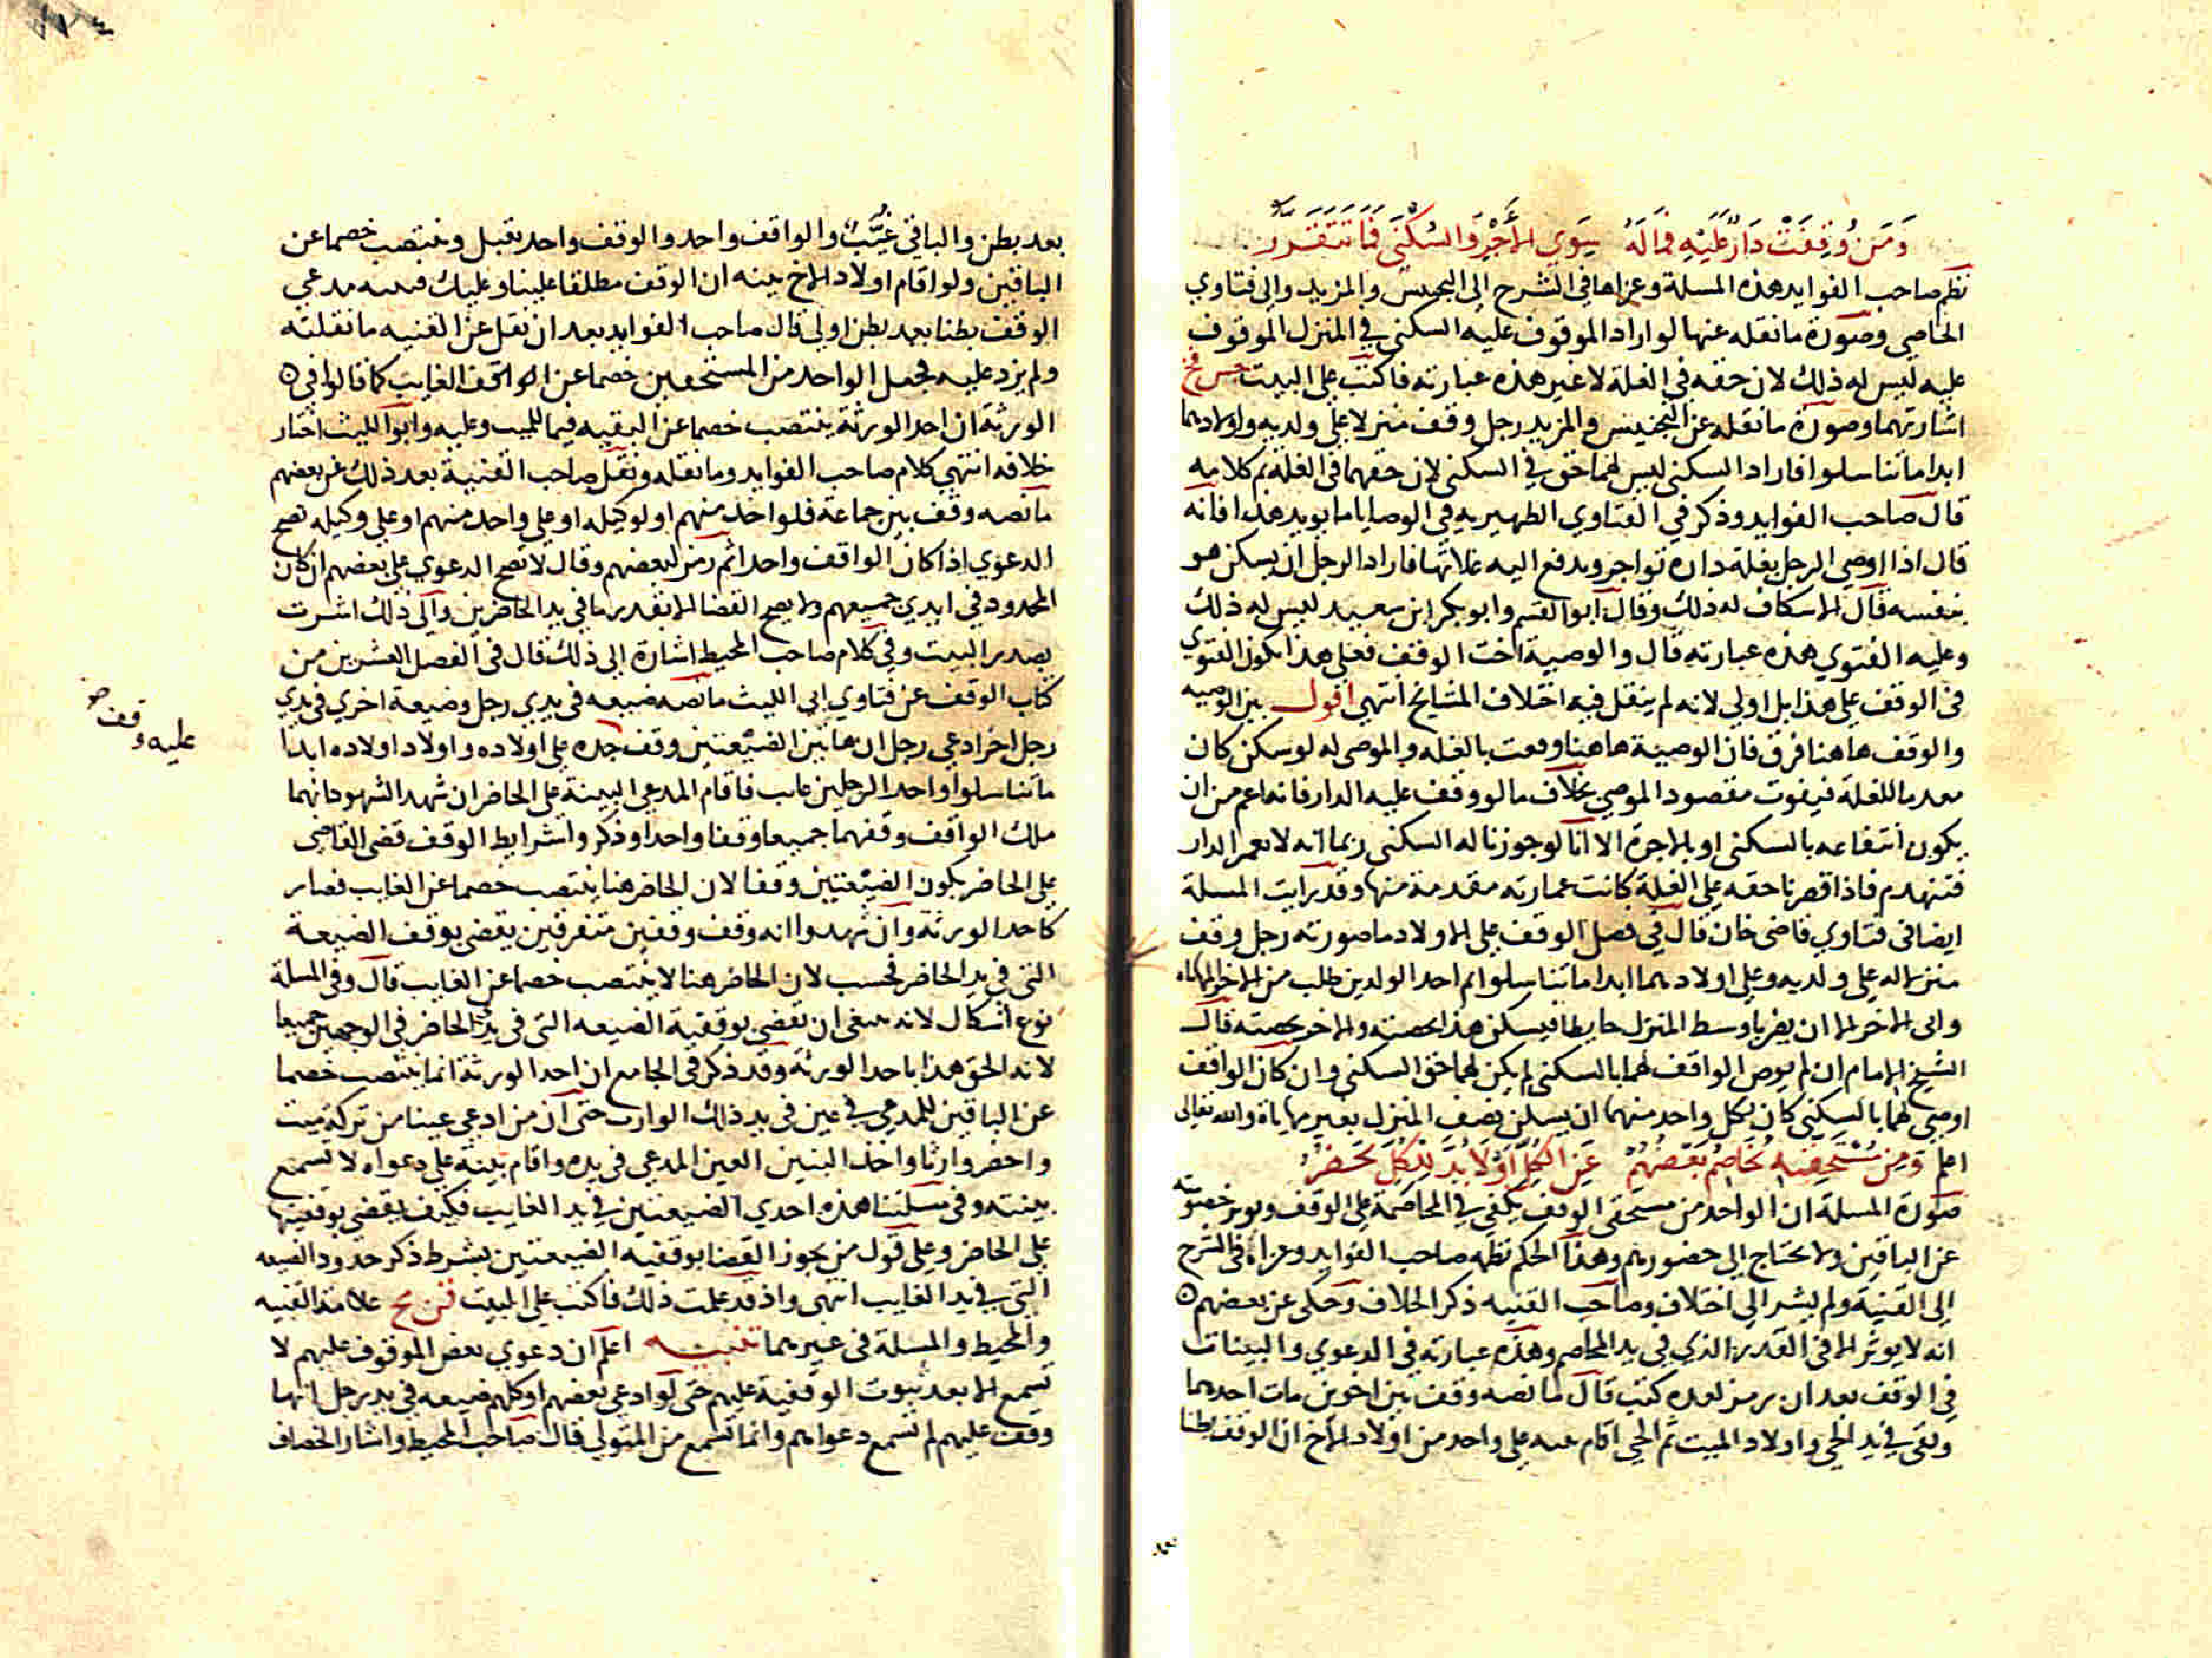 وَمَنْ وُقِفَتْ دَارٌ عَلَيْهِ فَمَا لَهُ سِوَي الأَجْرِ وَالسُّكْنَي فَمَا تَتَقَرَّرُ
نظم صاحب الفوايد هذه المسلة وعزاها في الشرح الى التجنيس والمزيد والى فتاوي
الخاصي وصورة ما نقله عنها لو اراد الموقوف عليه السكنى في المنزل الموقوف
عليه ليس له ذلك لان حقه في الغلة لا غير هذه عبارته فاكتب على البيت جس فخ
اشارتهما وصورة ما نقله عن التجنيس والمزيد رجل وقف منزلا على ولديه واولادهما
ابدا ما تناسلوا فاراد السكنى ليس لهما حق في السكنى لان حقهما في الغلة تم كلامه
قال صاحب الفوايد وذكر في الفتاوي الظهيريه في الوصايا ما يويد هذا فانه
قال اذا اوصى الرجل بغلة داره تواجر ويدفع اليه غلاتها فاراد الرجل ان يسكن هو
بنفسه قال الاسكاف له ذلك وقال ابو القسم وابو بكر ابن سعيد ليس له ذلك
وعليه الفتوي هذه عبارته قال والوصية اخت الوقف فعلى هذا تكون الفتوي
في الوقف على هذا بل اولي لانه لم ينقل فيه اختلاف المشايخ انتهى اقول بين الوصيه
والوقف هاهنا فرق فان الوصية هاهنا وقعت بالغله والموصى له لو سكن كان
معدما للغلة فيفوت مقصود الموصي بخلاف ما لو وقف عليه الدار فانه اعم من ان
يكون انتفاعه بالسكنى او بالاجرة الا انا لو جوزنا له السكنى ربما انه لا يعمر الدار
فتنهدم فاذا قصرنا حقه على الغلة كانت عمارته مقدمة منها وقد رايت المسلة
ايضا في فتاوي قاضي خان قال في فصل الوقف على الاولاد ما صورته رجل وقف
منزلا له على ولديه وعلى اولادهما ابدا ما تناسلوا ثم احد الولدين طلب من الاخر المهاياه
وابى الاخر الا ان يضربا وسط المنزل حايطا فيسكن هذا بحصته والاخر بحصته قال
الشيخ الامام ان لم يوص الواقف لهما بالسكنى لم يكن لهما حق السكنى وان كان الواقف
اوصى لهما بالسكنى كان لكل واحد منهما ان يسكن نصف المنزل بغير مهاياة والله تعالى
اعلم وَمِنْ مُسْتَحِقِّيهِ يُخَاصِمُ بَعْضُهُمْ عَنِ الكُلِّ أَوْ لَا بُدَّ لِلْكُلِّ يَحْضُرُ
صورة المسلة ان الواحد من مستحقي الوقف يكفي في المخاصمة على الوقف ويوثر خصومته
عن الباقين ولا يحتاج الى حضورهم وهذا الحكم نظمه صاحب الفوايد وعزاه في الشرح
الى القنية ولم يشر الى اختلاف وصاحب القنيه ذكر الخلاف وحكى عن بعضهم ٥
انه لا يوثر الا في القدر الذي في يد المخاصم وهذه عبارته في الدعوي والبينات
في الوقف بعد ان رمز لعدة كتب قال ما نصه وقف بين اخوين مات احدهما
وبقى في يد الحي واولاد الميت ثم الحي اقام بينه على واحد من اولاد الاخ ان الوقف بطنا
بعد بطن والباقي غُيَّبٌ والواقف واحد والوقف واحد تقبل وينتصب خصما عن
الباقين ولو اقام اولاد الاخ بينه ان الوقف مطلقا علينا وعليك فبينه مدعي
الوقف بطنا بعد بطن اولي قال صاحب الفوايد بعد ان نقل عن القنيه ما نقلته
ولم يزد عليه فجعل الواحد من المستحقين خصما عن الواقف الغايب كما قالوا في ٥
الورثة ان احد الورثة ينتصب خصما عن البقيه فيما للميت وعليه وابو الليث اختار
خلافه انتهى كلام صاحب الفوايد وما نقله ونقل صاحب القنية بعد ذلك عن بعضهم
ما نصه وقف بين جماعة فلواحد منهم او لوكيله او على واحد منهم او على وكيله تصح
الدعوي اذا كان الواقف واحدا ثم رمز لبعضهم وقال لا تصح الدعوي على بعضهم ان كان
المحدود في ايدي جميعهم ولا يصح القضا الا بقدر ما في يد الحاضرين والى ذلك اشرت
بصدر البيت وفي كلام صاحب المحيط اشارة الى ذلك قال في الفصل العشرين من
كتاب الوقف عن فتاوي ابى الليث ما نصه ضيعه في يدي رجل وضيعة اخري في يدي
رجل اخر ادعى رجل ان هاتين الضيعتين وقف جده على اولاده واولاد اولاده ابدا
ما تناسلوا واحد الرجلين غايب فاقام المدعي البينة على الحاضر ان شهد الشهود انهما
ملك الواقف وقفهما جميعا وقفا واحدا وذكروا شرايط الوقف قضى القاضي
على الحاضر بكون الضيعتين وقفا لان الحاضر هنا ينتصب خصما عن الغايب فصار
كاحد الورثة وان شهدوا انه وقف وقفين متفرقين يقضى بوقف الضيعة
التي في يد الحاضر فحسب لان الحاضر هنا لا ينتصب خصما عن الغايب قال وفي المسلة
نوع اشكال لانه ينبغى ان يقضى بوقفية الضيعه التى في يد الحاضر في الوجهين جميعا
لانه الحق هذا باحد الورثة وقد ذكر في الجامع ان احد الورثة انما ينتصب خصما
عن الباقين للمدعي في عين في يد ذلك الوارث حتى ان من ادعى عينا من تركة ميت
واحضر وارثا واخذ البنين العين المدعي في يده واقام بينة على دعواه لا تسمع
بينته وفي مسلتنا هذه احدي الضيعتين في يد الغايب فكيف يقضى بوقفيتها
على الحاضر وعلى قول من يجوز القضا بوقفيه الضيعتين بشرط ذكر حدود الضيعه
التي في يد الغايب انتهى واذ قد علمت ذلك فاكتب على البيت قن مح علامة القنيه
والمحيط والمسلة في غيرهما تنبيه اعلم ان دعوي بعض الموقوف عليهم لا
تسمع الا بعد ثبوت الوقفية عليهم حتى لو ادعى بعضهم او كلهم ضيعه في يد رجل انها
وقف عليهم لم تسمع دعواهم وانما تسمع من المتولي قال صاحب المحيط واشار الخصاف
عليه وقف صح